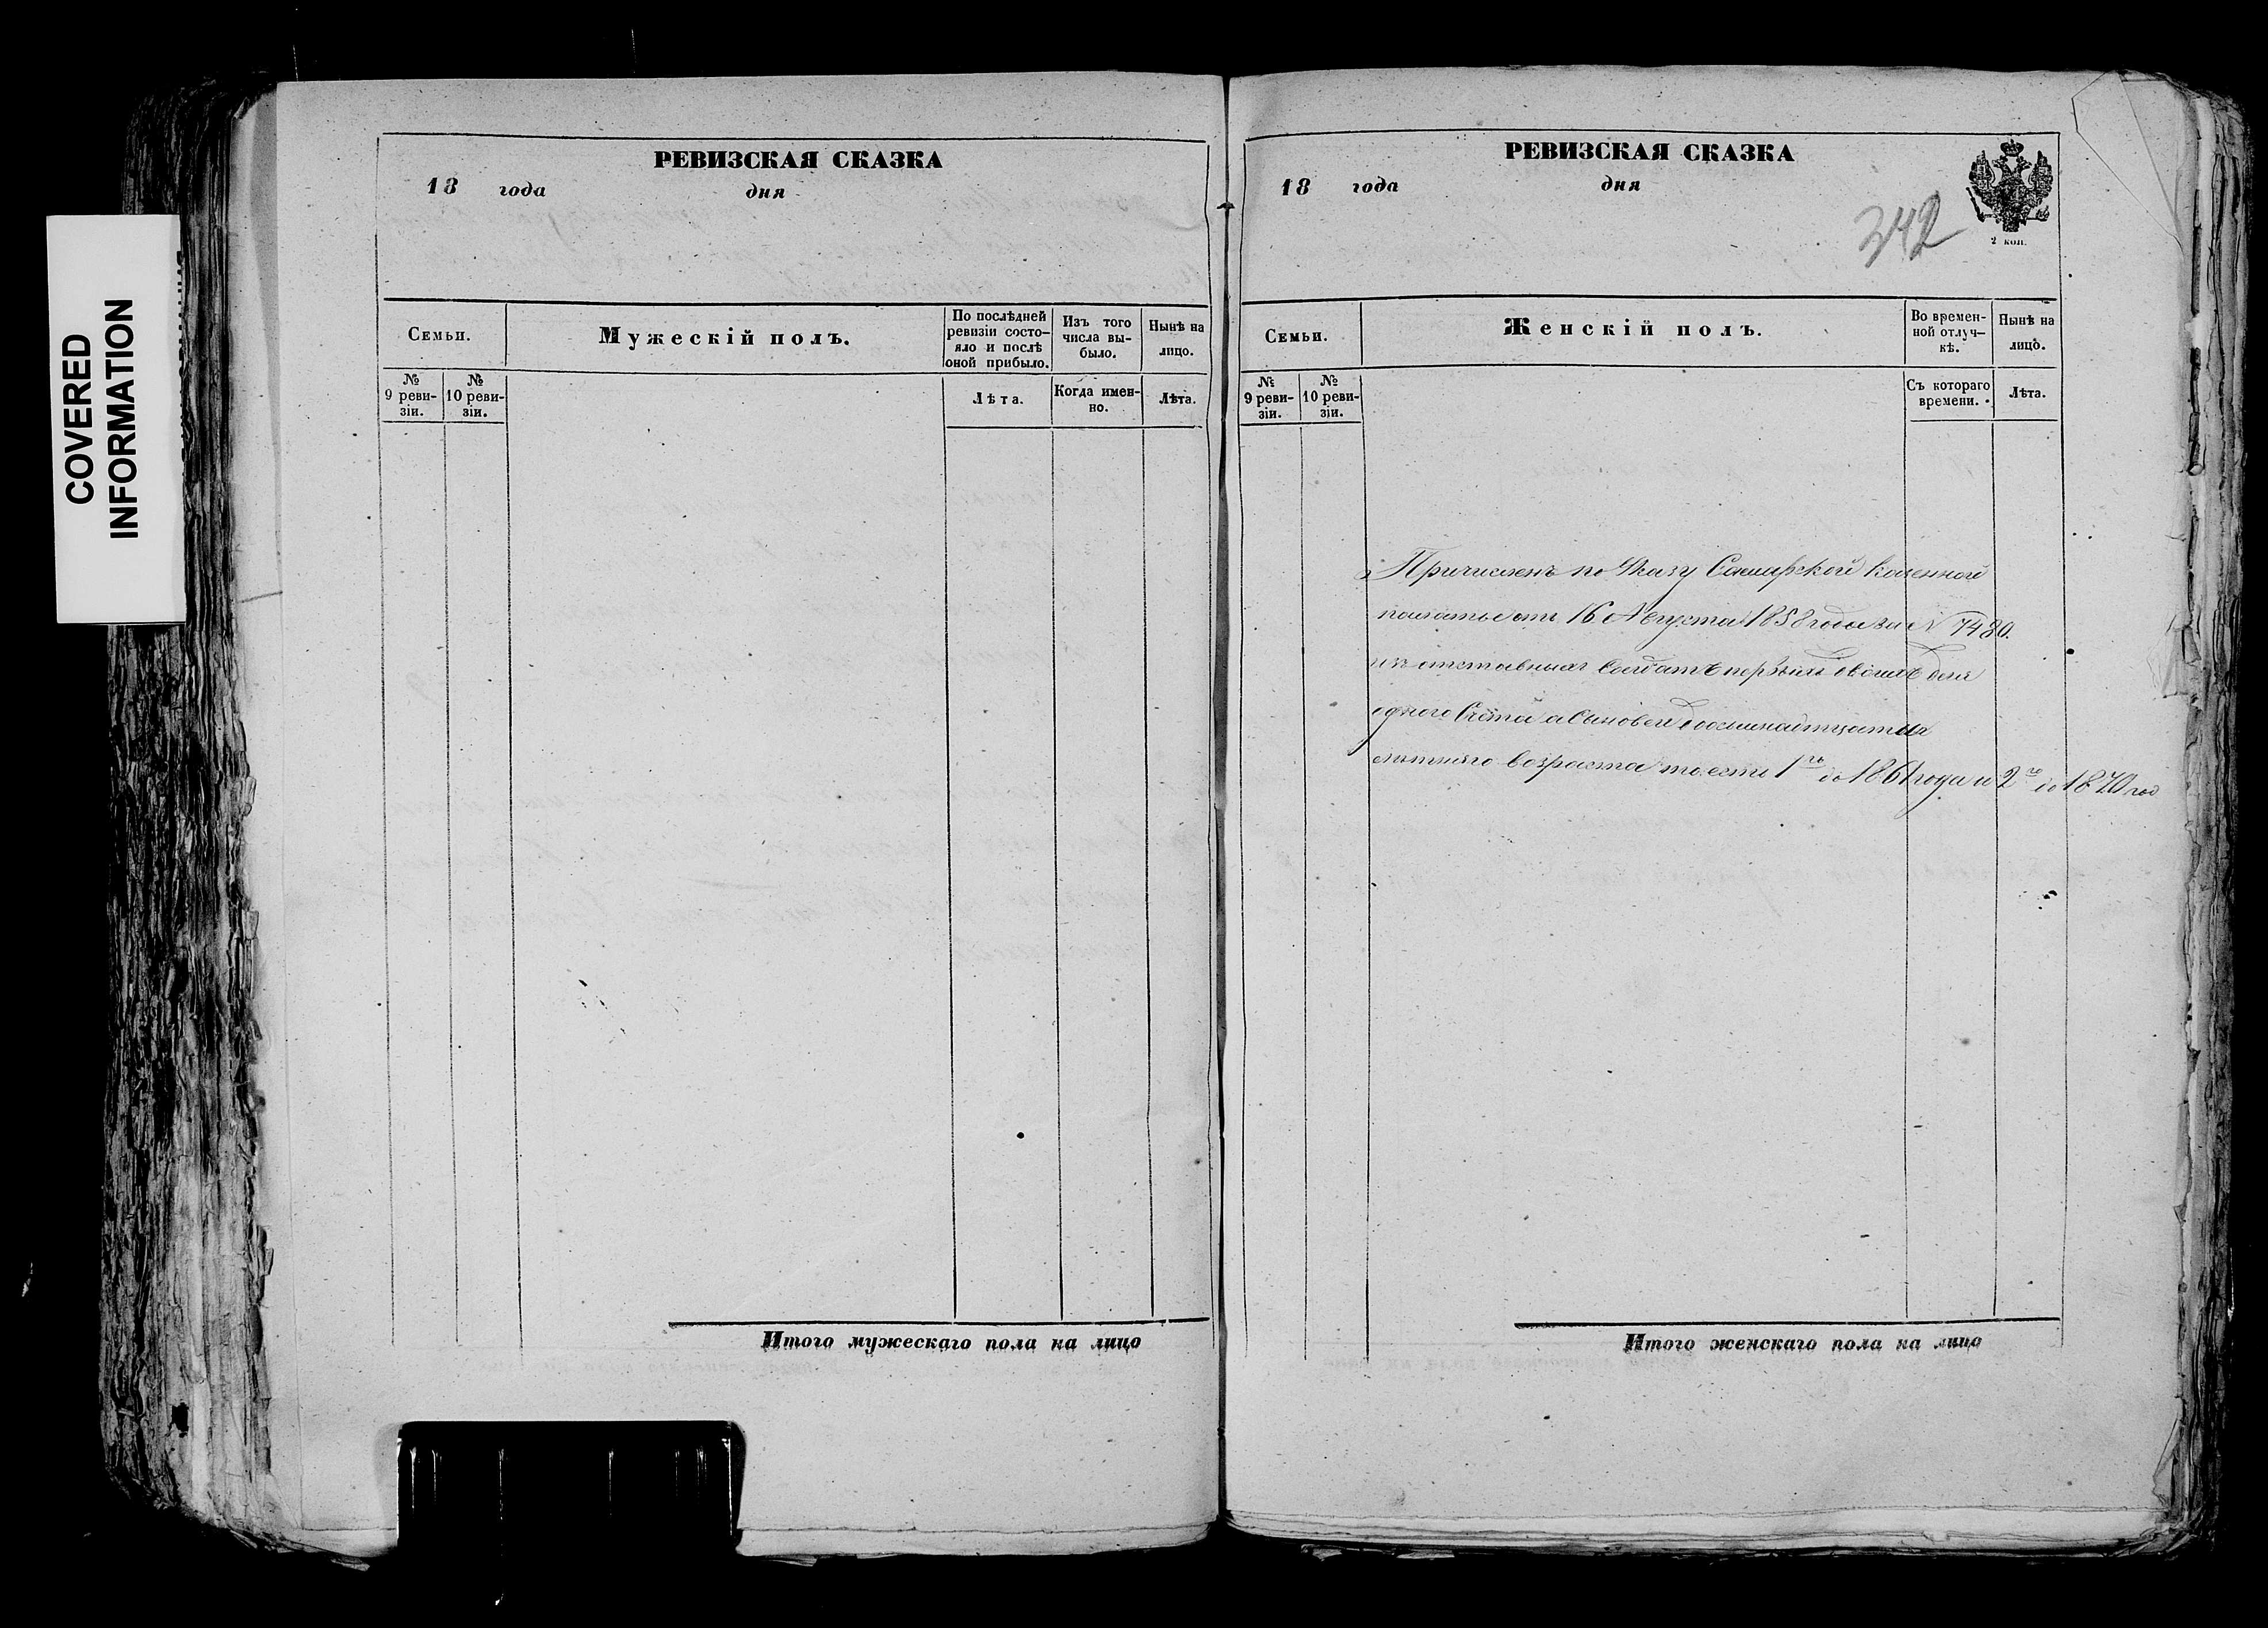 COVERED
INFORMATION
РЕВИЗСКАЯ СКАЗКА
18 года дня
Семьи.
Мужескій полъ.
По послѣдней ревизіи состо-яло и послѣ оной прибыло.
Изъ того числа вы-было.
Нынѣ на лицо.
№ 9 реви-зіи.
№ 10 реви-зіи.
Лѣта.
Когда имен-но.
Лѣта.
Итого мужескаго пола на лицо
РЕВИЗСКАЯ СКАЗКА
18 года дня
342
2 коп.
Семьи.
Женскій полъ.
Во времен-ной отлуч-кѣ.
Нынѣ на лицо.
№ 9 реви-зіи.
№ 10 реви-зіи.
Съ котораго времени.
Лѣта.
Причисленъ по Указу Самарской казенной
палаты отъ 16 Августа 1858 года за N 7480.
изъ отставныхъ Солдатъ первый
одного Счета а Сыновеи до осминадцати
лѣтняго возраста то есть 1го до 1861 года и 2го до 1870 год
Итого женскаго пола на лицо